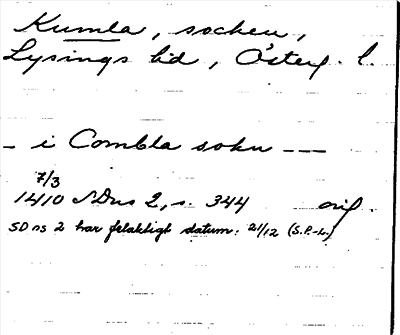 Kumla, socken,
Lysings hd, Österg. l.
– i Combla sokn – –
7/3
1410 SDns 2, s. 344 orig.
SD ns 2 har felaktigt datum: 21/12 (S.P.-L.)